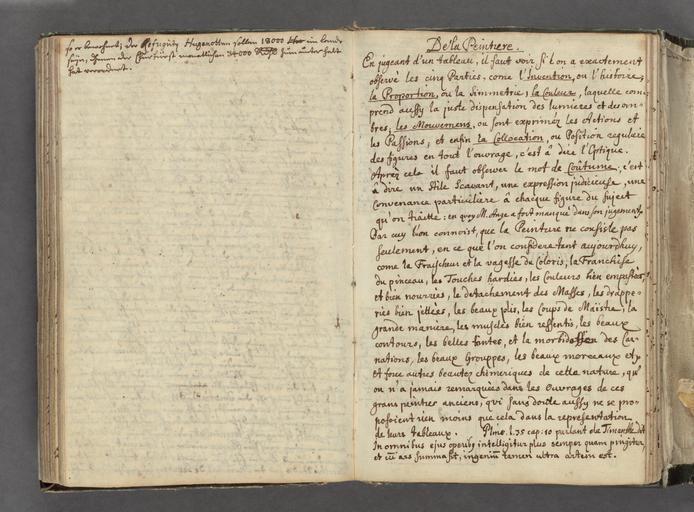 so er beweret; der Refugirty Hugenotten sollen 18000 in
seyn, Ihnen der Churfürst monatlichen 34000 zum unterhalt
hat verordnet.
De la Peinture.
En jugeant d'un tableau, il faut voir si l'on a exactement
observé les cinq Parties, come l'Invention, ou l'histoire,
la Proportion, ou la Simmetrie; la Couleur, laquelle com-
prend aussy la juste dispensation des lumieres et des om-
bres; les Mouvemens, ou sont exprimez les Actions et
les Passions; et enfin la Collocation, ou Position regulaire
des figures en tout l'ouvrage, c'est à dire l'Optique.
Aprez cela il faut observer le mot de Coûtume, c'est
à dire un Stile Scavant, une expression judicieuse, une
Convenance particuliere à chaque figure du Sujet
qu'on traitte: en quoy M. Ange a fort manqué dans son jugement.
Par cecy l'on connoist, que la Peinture ne consiste pas
seulement, en ce que l'on considere tant aujourdhuy,
come la Fraischeur et la vagesse du Coloris, la Franchise
du pinceau, les Touches hardies, les Couleurs bien empastées,
et bien nourries, le detachement des Masses, les drappe-
ries bien jettées, les beaux plis, les Coups de Maistre, la
grande maniere, les muscles bien ressentis, les beaux
contours, les belles tentes, et la morbidesse des Car-
nations, les beaux Grouppes, les beaux morceaux etc
et force autres beautez chimeriques de cette nature, qu'
on n'a jamais remarquées dans les Ouvrages de ces
grans peintres anciens, qui sans doute aussy ne se pro-
posoient rien moins que cela dans la representation
de leurs tableaux. Plin. l. 35 cap. 10 parlant de Timanthe dit
In omnibus ejus operib9 intelligitur plus semper quam pingitur
et cum ars summa sit, ingenium tamen ultra artem est.